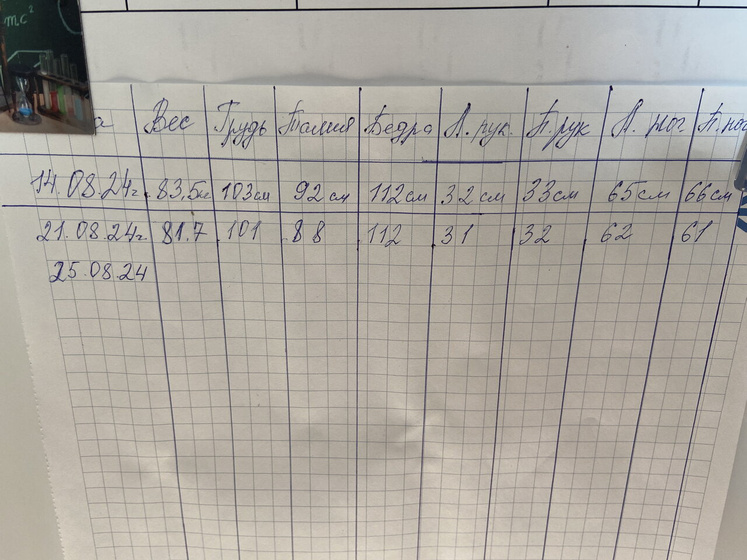 mc²
а Вес Грудь Талия Бедра Л. рук. П. рук Л. ног. П. ног
14.08.24г. 83,5кг 103см 92см 112см 32см 33см 65см 66см
21.08.24г. 81.7 101 88 112 31 32 62 61
25.08.24